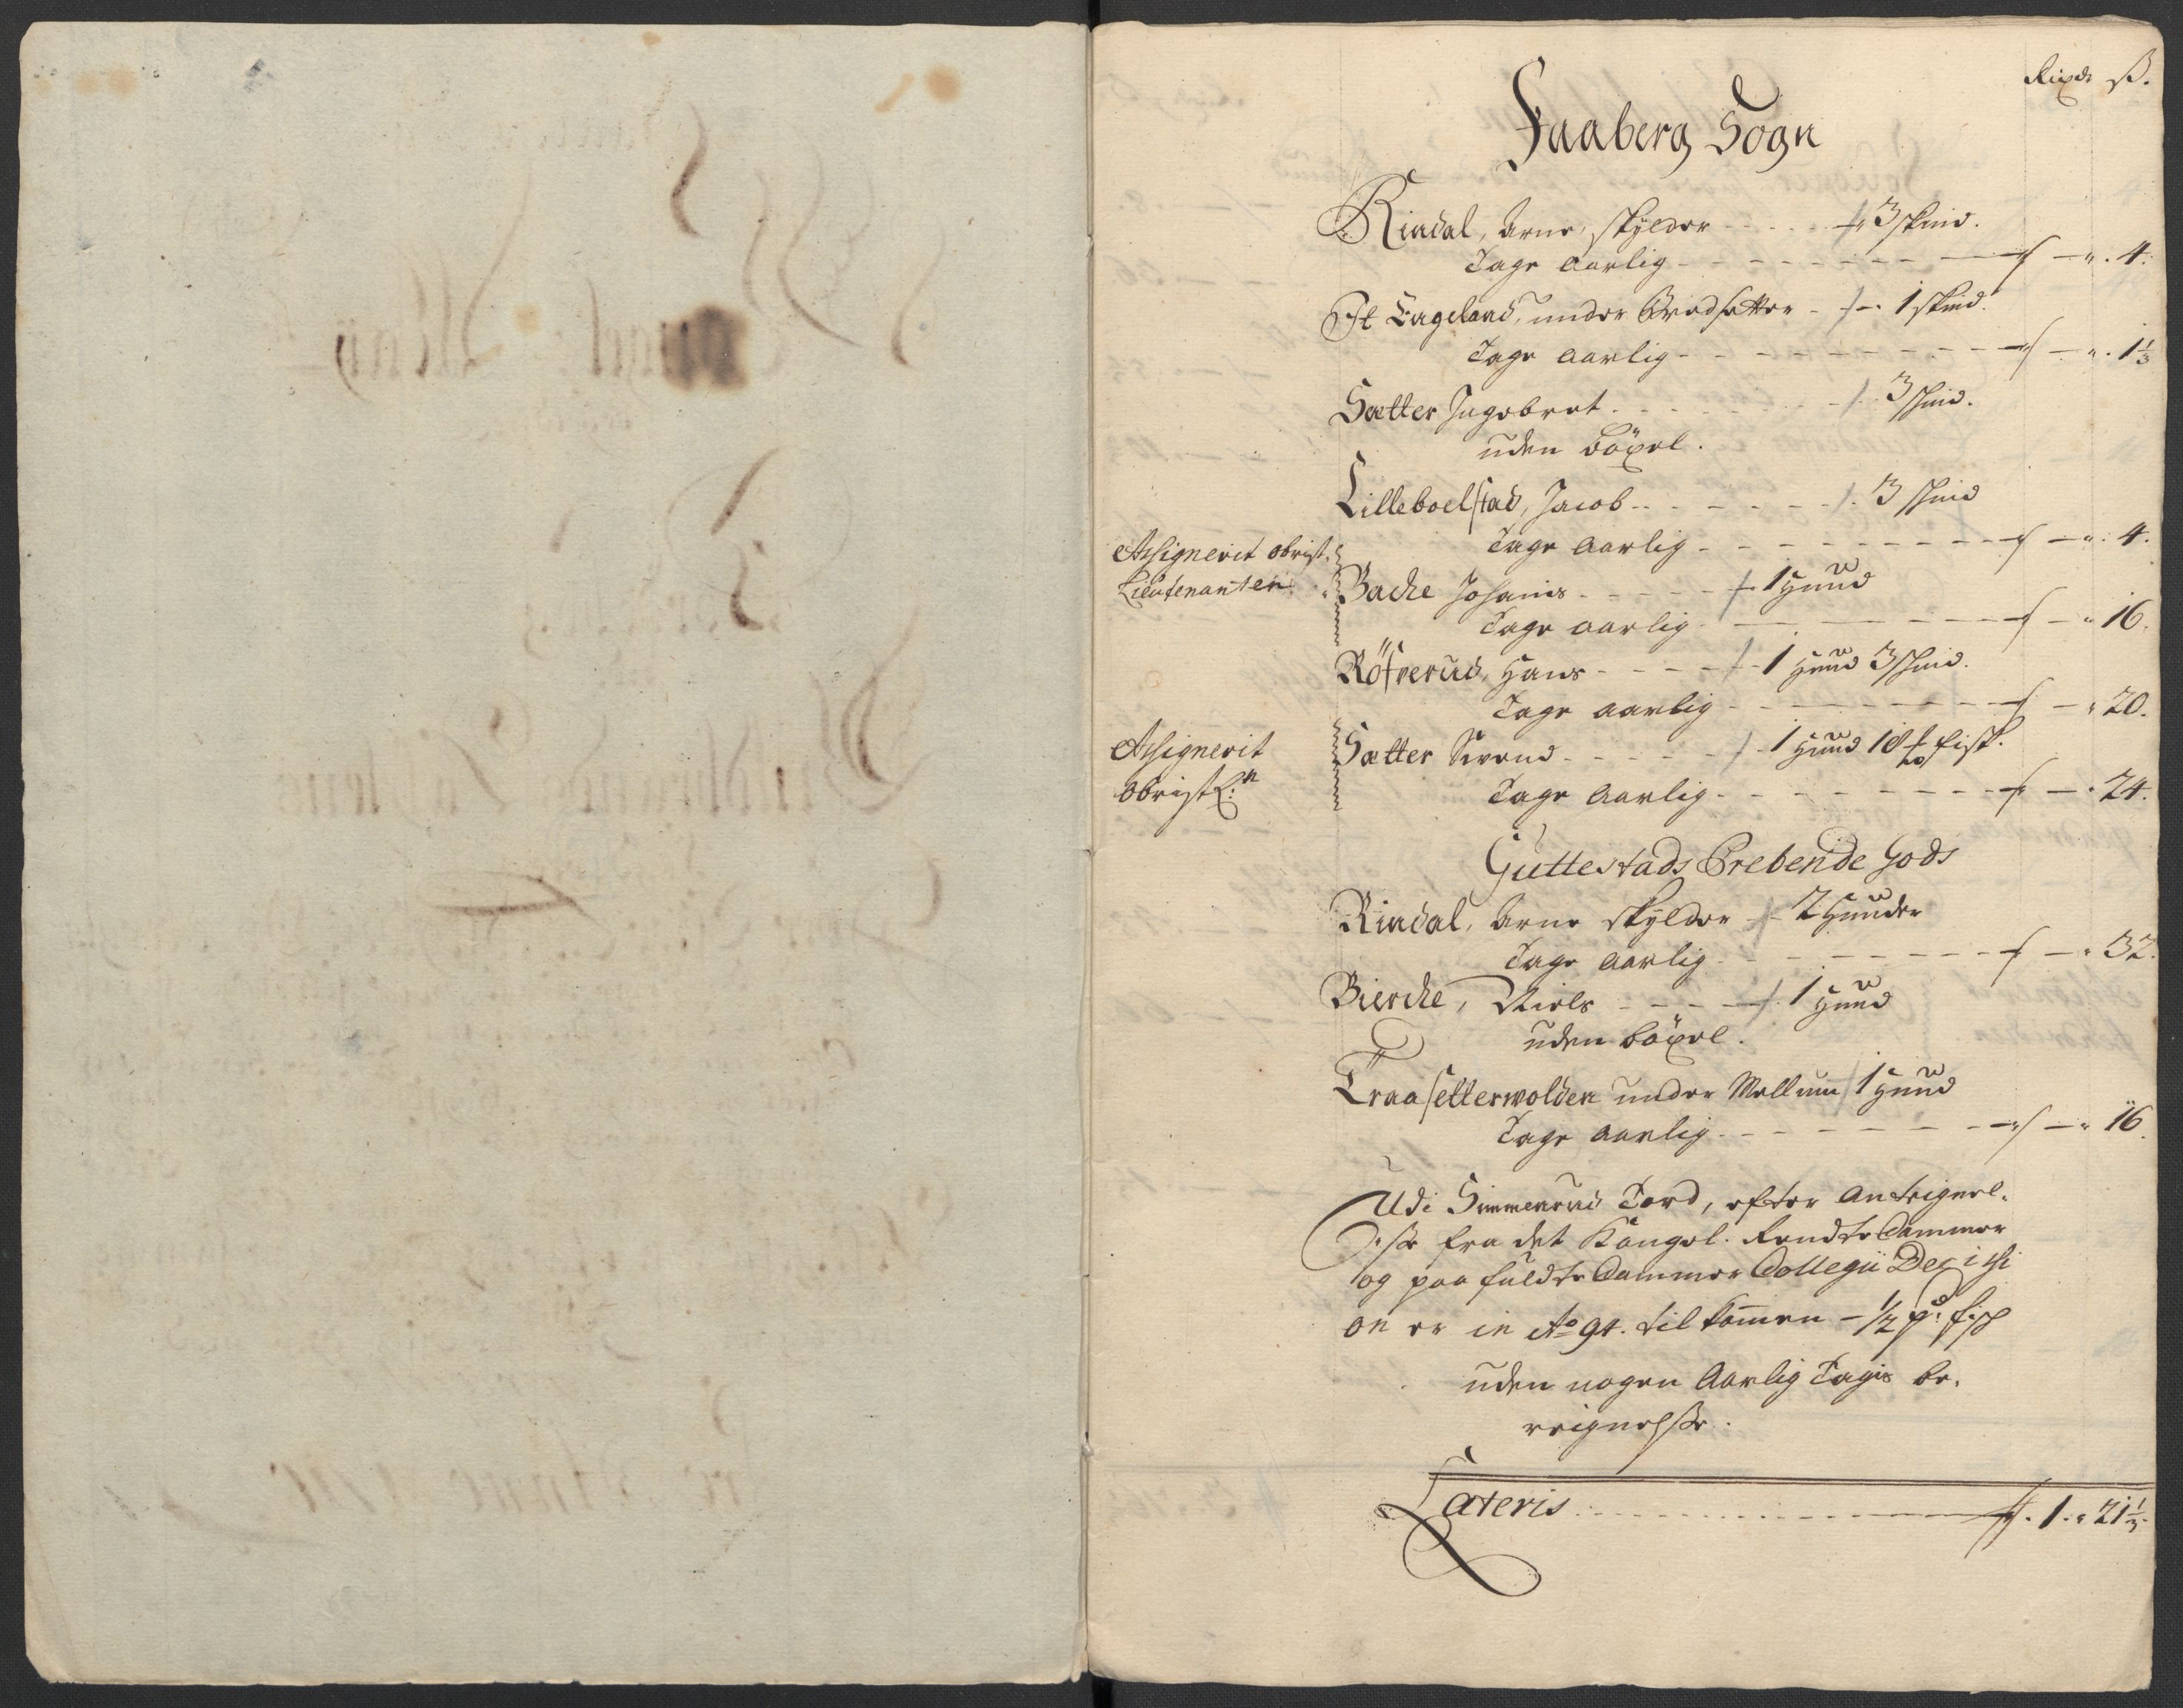 Rixdr ß.
Faaberg Sogn
Rindal, Arne, skylder - - - - 3 skind.
Tage aarlig - - - - - - - - - - „ . 4.
It Engeland, under Bradsætter - - 1 skind.
Tage aarlig - - - - - - - - - - „ . 1 1/3
Sætter Ingebret . - - - - - - 3 skind.
uden böxel.
Lilleboelstad, Jacob - - - - - - 3 skind
Tage aarlig - - - - - - - - - - „ . 4.
Assignerit Obrist
Lieutenanten.
Bache Johanis - - - - - 1 Huud
Tage aarlig - - - - - - - - - „ 16.
Röfnerud, Hans - - - - - 1 Huud 3 skind.
Tage aarlig - - - - - - - - - „ 20.
Assignerit
Obrist L:n
Sætter Svend - - - - - 1 Huud 18 fisk.
Tage aarlig - - - - - - - - - . 24.
Guttestads Prebende Gods
Rindal, Arne skylder - 2 Huuder
Tage aarlig - - - - - - - - - „ 32.
Bierche, Niels - - - - 1 Huud
uden böxel.
Traasetterwolden under Mellum 1 Huud
Tage aarlig - - - - - - - - - „ 16.
Udi Simmenrud Tord, efter Anteignel-
se fra det Kongel. Rendte Cammer
og paa fuldte Cammer Collegii Decithi
on er in Ao 94. tilkommen - 1/2 pd: fisk
uden nogen Aarlig Tagis be-
reignelsse.
Lateris . . . . . . . . . . . . 1 . „ 21 1/3